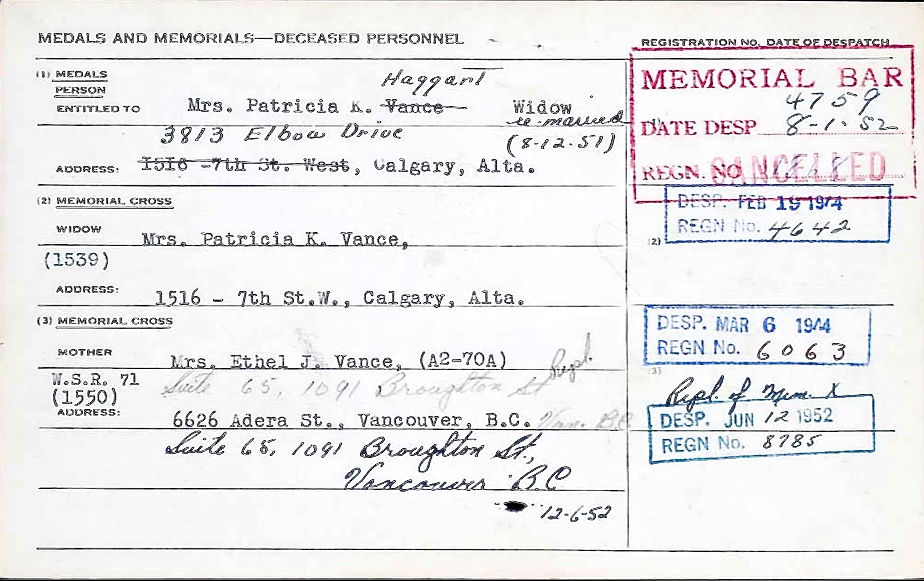 MEDALS AND MEMORIALS—DECEASED PERSONNEL
REGISTRATION NO. DATE OF DESPATCH
(1) MEDALS
PERSON
ENTITLED TO
Haggart
Mrs. Patricia K. Vance Widow
re-married
(8-12-51)
3813 Elbow Drive
ADDRESS: 1516 -7th St. West, Calgary, Alta.
MEMORIAL BAR
4759
DATE DESP 8-1-52
REGN. NO
CANCELLED
DESP. FEB 19 1944
REGN No. 4642
(2) MEMORIAL CROSS
WIDOW
Mrs. Patricia K. Vance,
(1539)
(2)
ADDRESS: 1516 - 7th St.W., Calgary, Alta.
(3) MEMORIAL CROSS
DESP. MAR 6 1944
REGN No. 6063
MOTHER
Mrs. Ethel J. Vance, (A2-70A) Repl.
(3)
W.S.R. 71
(1550)
Suite 65, 1091 Broughton St
Repl. of Mem. X
ADDRESS: 6626 Adera St., Vancouver, B.C. Van. BC
DESP. JUN 12 1952
REGN No. 8785
Suite 65, 1091 Broughton St.,
Vancouver B.C
12-6-52